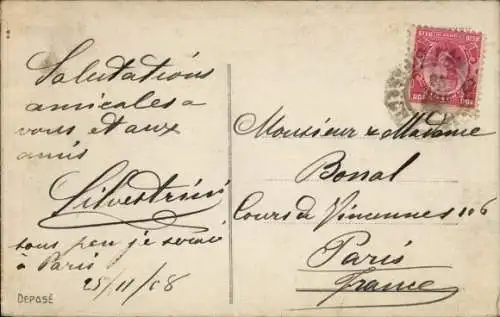 Salutations
amicales a
vous et aux
amis
Silvestrini
sous peu je serai
à Paris
25/11/08
DEPOSÉ
Monsieur & Madame
Bonal
Cours de Vincennes 106
Paris
France